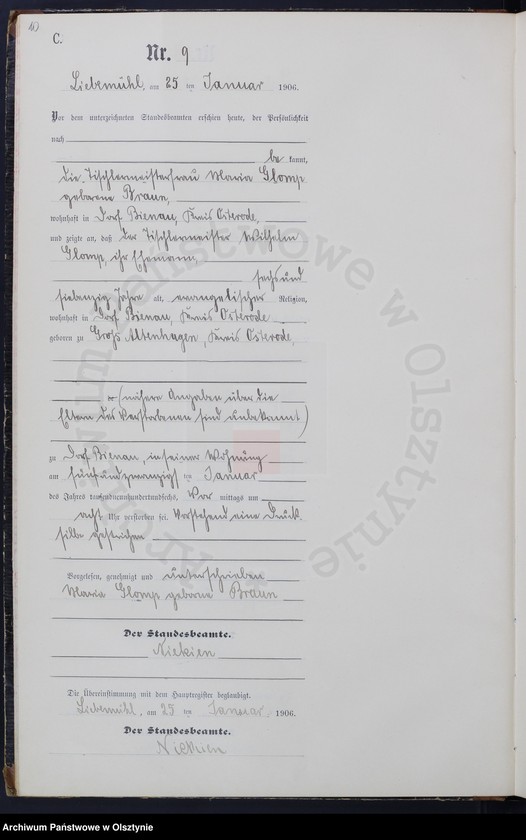 10
C.
Nr. 9
Liebemühl, am 25 ten Januar 1906.
Vor dem unterzeichneten Standesbeamten erschien heute, der Persönlichkeit
nach
be kannt,
die Tischlermeisterfrau Maria Glomp
geborene Braun,
wohnhaft in Dorf Bienau, Kreis Osterode,
und zeigte an, daß der Tischlermeister Wilhelm
Glomp, ihr Ehemann,
sechsund
siebenzig Jahre alt, evangelischer Religion,
wohnhaft in Dorf Bienau, Kreis Osterode
geboren zu Groß Altenhagen, Kreis Osterode,
(nähere Angaben über die
Eltern des Verstorbenen sind unbekannt)
zu Dorf Bienau, in seiner Wohnung
am fünfundzwanzigsten Januar
des Jahres tausendneunhundertundsechs, Vor mittags um
acht Uhr verstorben sei. Vorstehend eine Druck
silbe gestrichen
Vorgelesen, genehmigt und unterschrieben
Maria Glomp geborne Braun
Der Standesbeamte.
Niekien
Die Übereinstimmung mit dem Hauptregister beglaubigt.
Liebemühl, am 25 ten Januar 1906.
Der Standesbeamte.
Niekien
Archiwum Państwowe w Olsztynie
Archiwum Państwowe w Olsztynie